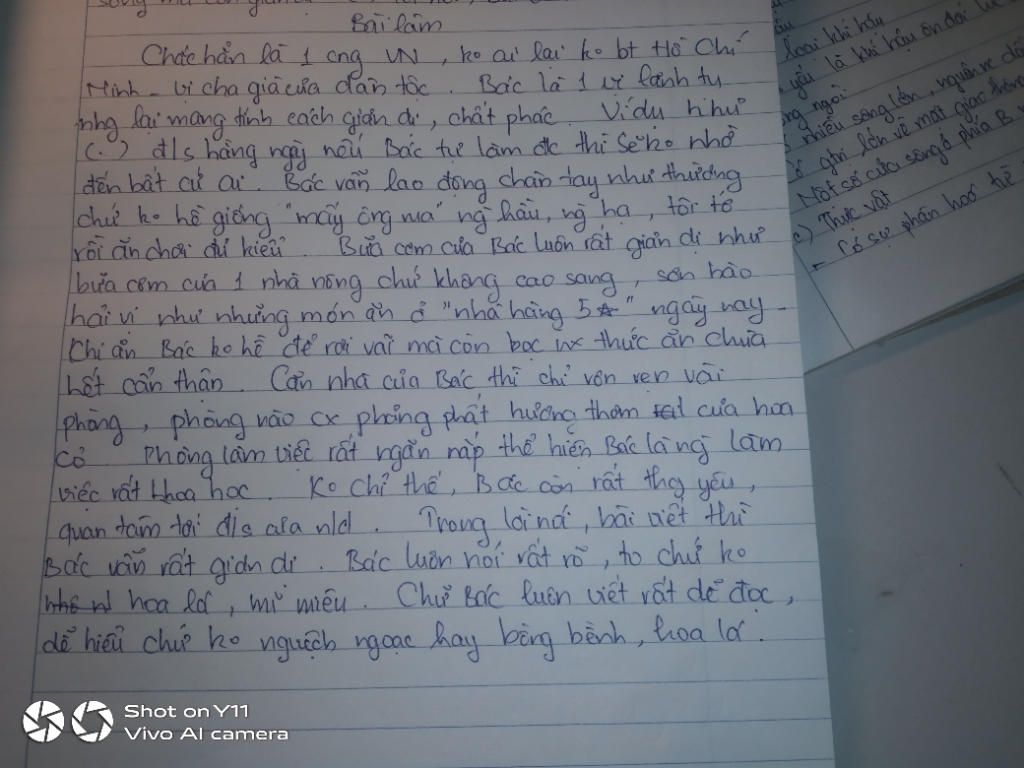 Bài làm
Chắc hẳn là 1 cng VN, ko ai lại ko bt Hồ Chí
Minh - vị cha già của dân tộc. Bác là 1 vị lãnh tụ
nhg lại mang tính cách giản dị, chất phác. Ví dụ như
(.) đ/s hằng ngày nếu Bác tự làm đc thì sẽ ko nhờ
đến bất cứ ai. Bác vẫn lao động chân tay như thường
chứ ko hề giống "mấy ông ma" ng hầu, ng hạ, tôi tớ
rồi ăn chơi đủ kiểu. Bữa cơm của Bác luôn rất giản dị như
bữa cơm của 1 nhà nông chứ không cao sang, sơn hào
hải vị như những món ăn ở "nhà hàng 5☆" ngày nay.
Chỉ ăn Bác ko hề để rơi vãi mà còn bọc thức ăn chưa
hết cẩn thận. Căn nhà của Bác thì chỉ vỏn vẹn vài
phòng, phòng nào cx phảng phất hương thơm của hoa
cỏ Phòng làm việc rất ngăn nắp thể hiện Bác là ng làm
việc rất khoa học. Ko chỉ thế, Bác còn rất thg yêu,
quan tâm tới đ/s của nld. Trong lời nói, bài viết thì
Bác vẫn rất giản dị. Bác luôn nói rất rõ, to chứ ko
hoa lá, mĩ miều. Chữ Bác luôn viết rất dễ đọc,
dễ hiểu chứ ko nguệch ngoạc hay bềng bềnh, hoa lá.
loại khí hậu
yếu là khí hậu ôn đới
ng ngòi
nhiều sông lớn, nguồn
gtri lớn về mặt giao thông
Một số cửa sông ở phía B
c) Thực vật
- Có sự phân hoá từ
Shot on Y11
Vivo AI camera